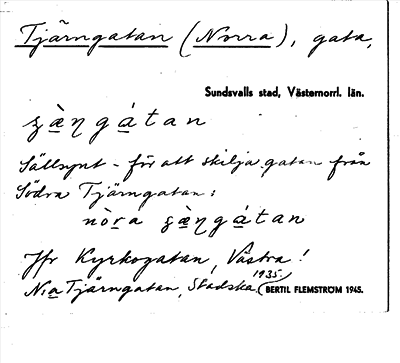 Tjärngatan (Norra), gata,
Sundsvalls stad, Västernorrl. län.
ʂæ̀ŋgátan
Sällsynt - för att skilja gatan från
Södra Tjärngatan:
nòra ʂæ̀ŋgátan
Jfr Kyrkogatan, Västra!
N:a Tjärngatan, Stadska 1935
BERTIL FLEMSTRÖM 1945.